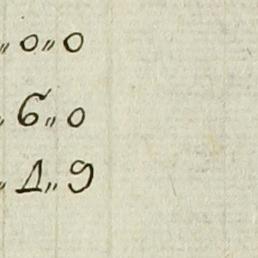 „ 0 „ 0
„ 6 „ 0
„ 1 „ 9